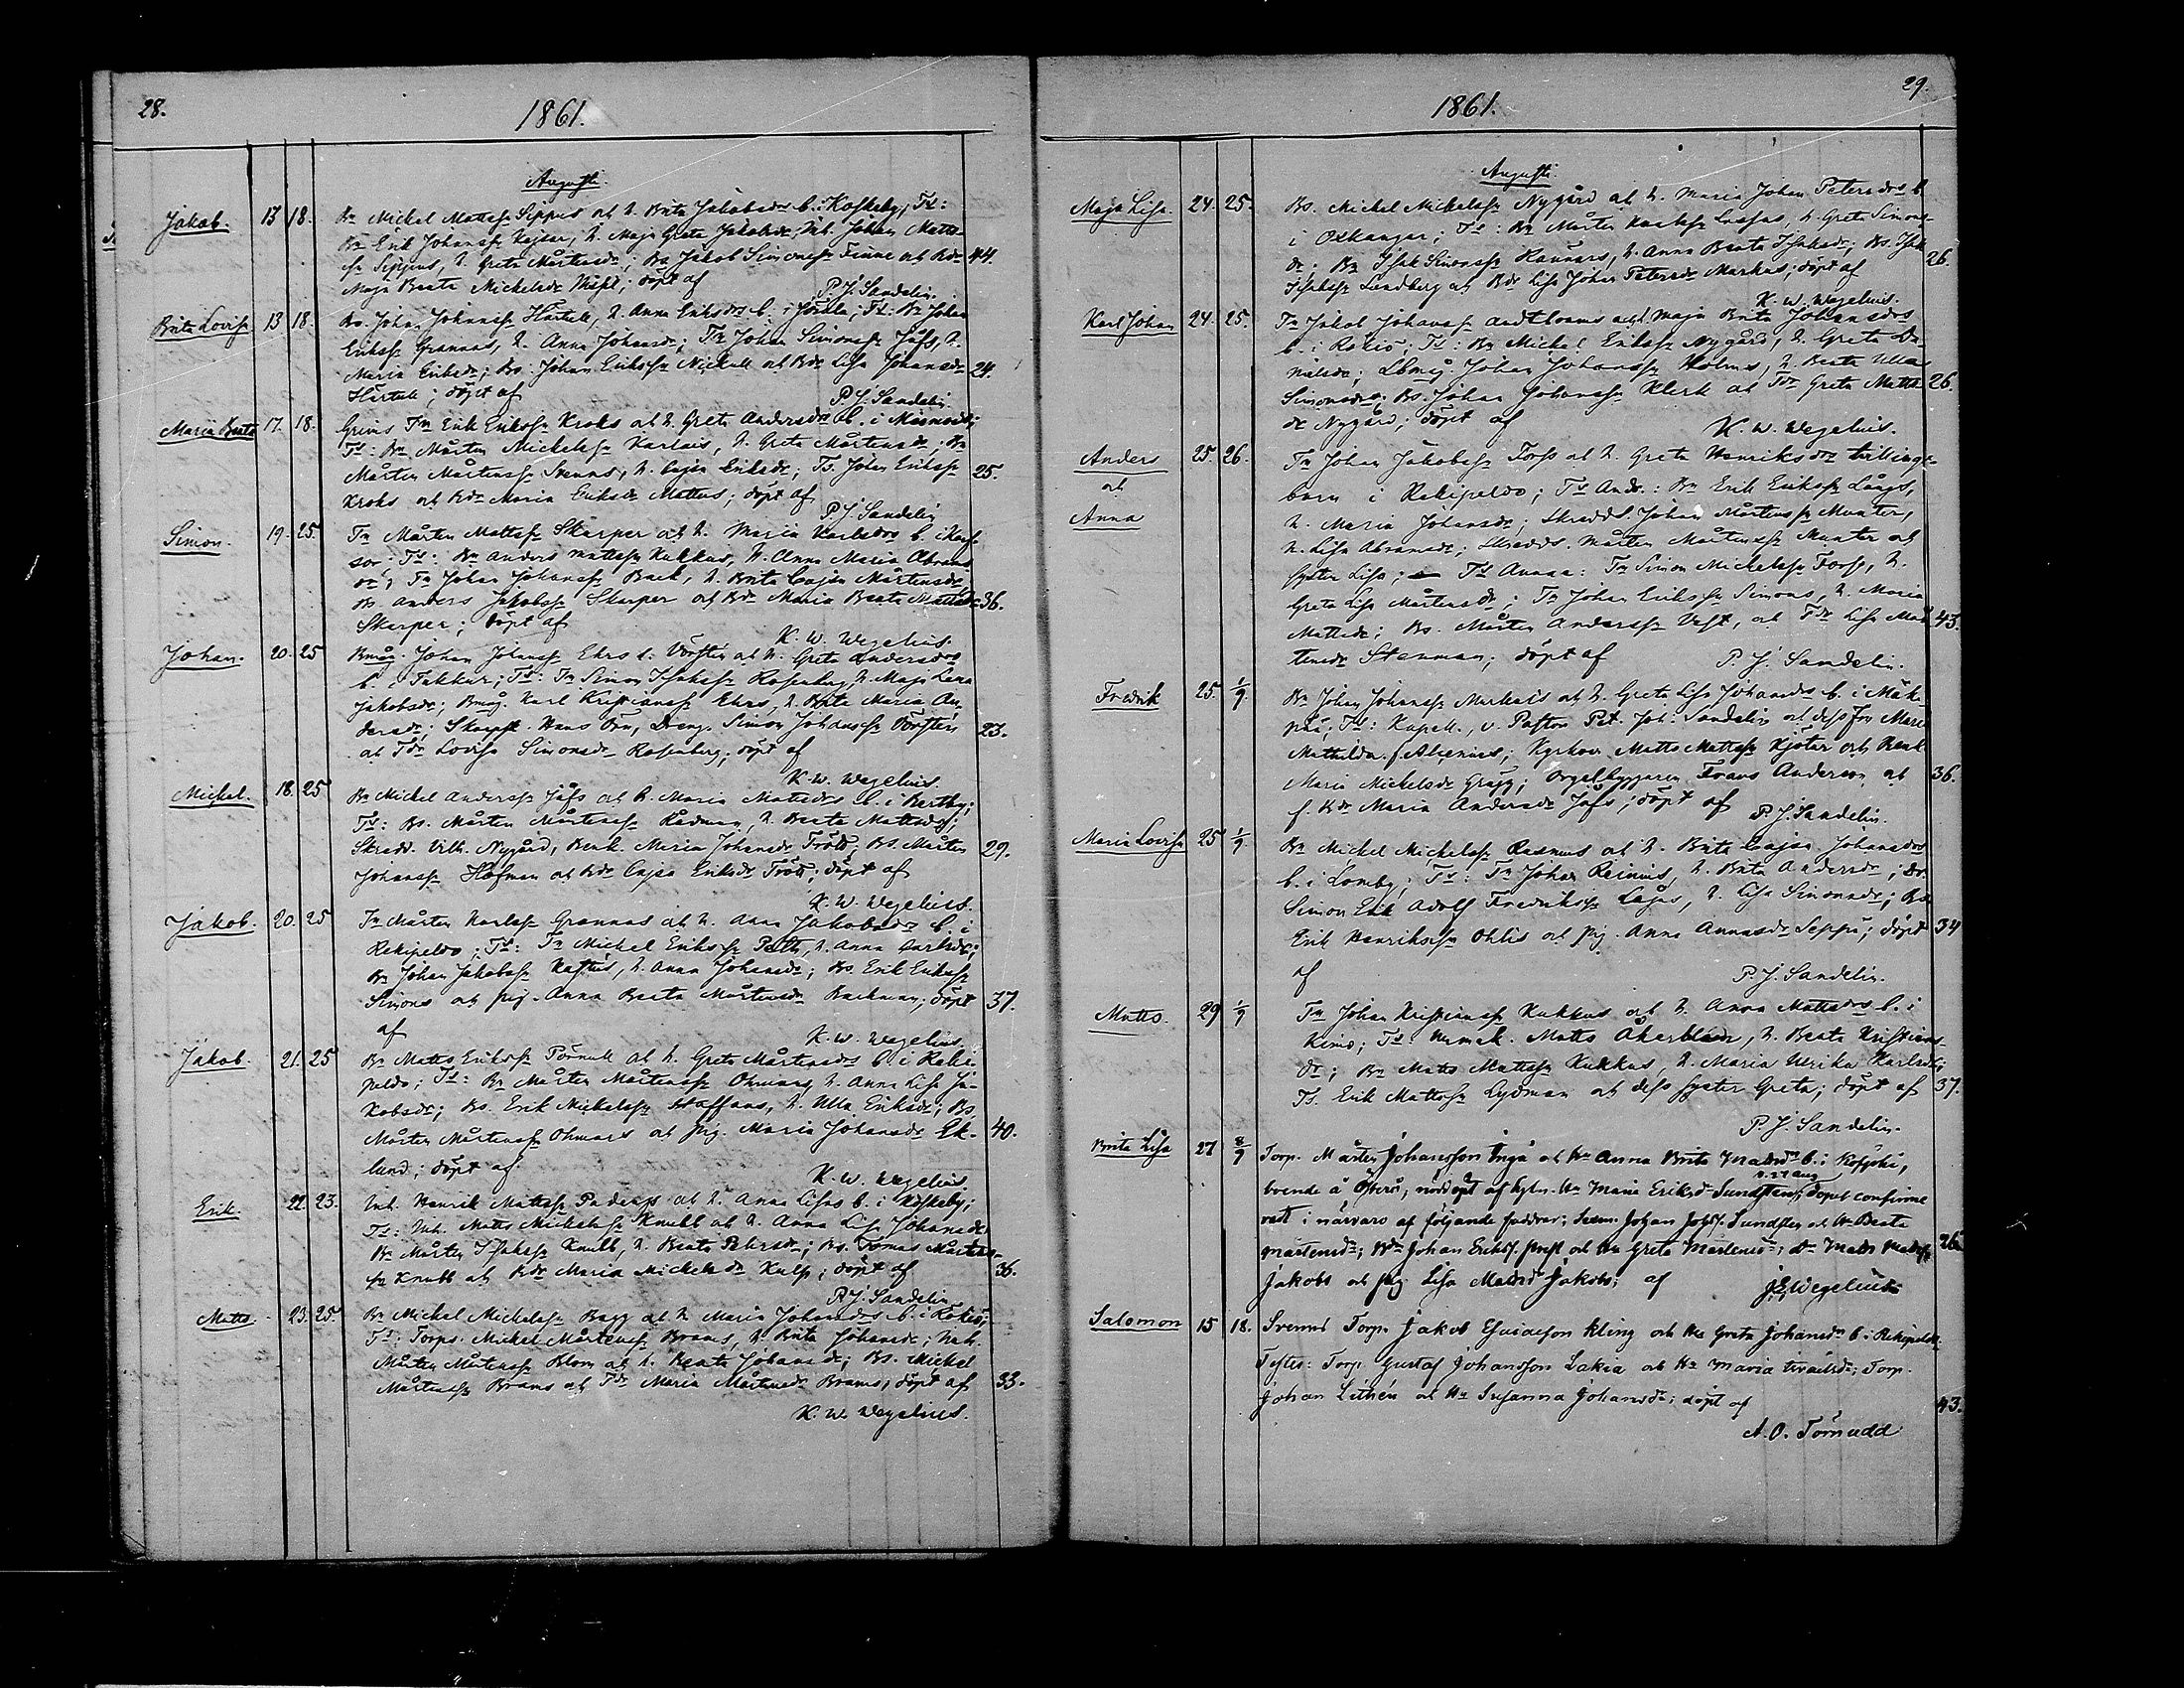 28.
1861.
Augusti.
Jakob. 13 18. Bn Michel Mattss. Sippus och h. Brita Jakobsdrs b. i Koskeby; Ts:
Bn Erik Johanss. Kajsar, h. Maja Greta Jakobsdr; Inh. Johan Matts-
sn Sippus, h. Greta Mårtensdr; Bs Jakob Simonss. Finne och Bdr 44.
Maja Beata Michelsdr; döpt af
P. J. Sandelin.
Brita Lovisa 13 18. Bn. Johan Johanss. Härtull, h. Anna Eriksdrs b. i Jörala; Ts: Bn Johan
Erikss. Grannas, h. Anna Johansdr; Tn Johan Simonss. Jåfs, h.
Maria Eriksdr; Bs. Johan Erikss. Nickull och Bdr Lisa Johansdr 24.
Härtull; döpt af
P. J. Sandelin.
Maria Beata 17. 18. Tn Erik Erikss. Kroks och h. Greta Andersdrs b. i
Ts: Bn Mårten Michelss. Karlais, h. Greta Mårtensdr; Bn
Mårten Mårtenss. h. Cajsa Eriksdr; Ts. Johan Erikss. 25.
Kroks och Bdr Maria Eriksdr Mattus; döpt af
P. J. Sandelin
Simon. 19. 25. Tn Mårten Mattss. Skarper och h. Maria Karlsdrs b. i Kait-
sor; Ts: Bn Anders Mattss. Kukkus, h. Anna Maria Abrams-
dr; Tn Johan Johanss. Back, h. Brita Cajsa Mårtensdr;
Bs Anders Jakobss. Skarper och Bdr Maria Beata Mattsdr 36.
Skarper; döpt af
K. W. Wegelius.
Johan. 20. 25 Bmåg. Johan Johanss. Ehrs l. Vörsten och h. Greta Andersdrs
b. i Tukkur; Ts: Tn Simon Isakss. Rosenberg, h. Maja Lena
Jakobsdr; Bmåg. Karl Kristianss. Ehrs, h. Brita Maria An-
dersdr; Skarpsk. Hans Örn, Dreng. Simon Johanss. Vörsten 23.
och Tdr Lovisa Simonsdr Rosenberg; döpt af
K. W. Wegelius.
Michel. 18. 25 Bn Michel Anderss. Jåfs och h. Maria Mattsdrs b. i Bertby;
Ts: Bs. Mårten Mårtenss. Rådman, h. Beata Mattsdr;
Skredd. Vilh. Nygård, Benk. Maria Johansdr Frött; Bs. Mårten 29.
Johanss. Höfman och Bdr Cajsa Eriksdr Frött; döpt af
K. W. Wegelius.
Jakob. 20. 25 Tn Mårten Karlss. Grannas och h. Anna Jakobsdrs b. i
Rekipeldo; Ts: Tn Michel Erikss. Patts, h. Anna Karlsdr;
Bn Johan Jakobss. Kastus, h. Anna Johansdr; Bs. Erik Erikss.
Simons och pig. Anna Beata Mårtensdr Backman; döpt 37.
af
K. W. Wegelius.
Jakob. 21. 25 Bn Matts Erikss. Pörnull och h. Greta Mårtensdrs b. i Reki-
peldo; Ts: Bn Mårten Mårtenss. Ohmars, h. Anna Lisa Ja-
kobsdr; Bs. Erik Michelss. Staffans, h. Ulla Eriksdr; Bs.
Mårten Mårtenss. Ohmars och pig. Maria Johansdr Ek- 40.
lund; döpt af
K. W. Wegelius.
Erik. 22. 23. Inh. Henrik Mattss. och h. Anna Lisas b. i Koskeby;
Ts: Inh. Matts Michelss. Knubb och h. Anna Lisa Johansdr
Bn Mårten Isakss. Knubb, h. Beata Petersdr; Bs. Tomas Mårtens-
sn Knubb och Bdr Maria Michelsdr Kulp; döpt af 36.
P. J. Sandelin
Matts. 23. 25. Bn Michel Michelss. Bagg och h. Maria Johansdrs b. i Rökiö;
Ts: Torps. Michel Mårtenss. Brams, h. Brita Johansdr; Inh.
Mårten Mårtenss. Blom och h. Beata Johansdr; Bs. Michel
Mårtenss. Brams och Tdr Maria Mårtensdr Brams; döpt af 33.
K. W. Wegelius.
29.
1861.
Augusti.
Maja Lisa. 24. 25. Bs. Michel Michelss. Nygård och h. Maria Johan Petersdrs b.
i Oxkangar; Ts: Bn Mårten Karlss. Lassus, h. Greta Simons-
dr; Bn Isak Simonss. Rannars, h. Anna Beata Isaksdr; Bs. Isak 26.
Isakss. Lundberg och Bdr Lisa Johan Petersdr Markus; döpt af
K. W. Wegelius.
Karl Johan 24. 25. Tn Jakob Johanss. och h. Maja Brita Johansdrs
b. i Rökiö; Ts: Bn Michel Erikss. Nygård, h. Greta Da-
nielsdr; Johan Johanss. Holms, h. Beata Ulla
Simonsdr; Bs. Johan Johanss. Klerk och Tdr Greta Matts- 26.
dr Nygård; döpt af
K. W. Wegelius.
Anders 25. 26. Tn Johan Jakobss. Forss och h. Greta Henriksdrs tvillinge-
och barn i Rekipeldo; Ts Ands.: Bn Erik Erikss. Långs,
Anna h. Maria Johansdr; Skradd. Johan Mårtenss. Munter,
h. Lisa Abramsdr; Skradds. Mårten Mårtenss. Munter och
syster Lisa; Ts Annas: Tn Simon Michelss. Forss, h.
Greta Lisa Mårtensdr; Tn Johan Erikss. Simons, h. Maria
Mattsdr; Bs. Mårten Anderss. Vest, och Tdr Lisa Mår- 43.
tensdr Stenman; döpt af
P. J. Sandelin.
Fredrik 25. 1/9. Bn Johan Johanss. Markais och h. Greta Lisa Johansdrs b. i Mäk-
pää; Ts: Kapell., v. Pastor Pet. Joh: Sandelin och dess fru Maria
Mathilda f. Alcenius; Kyrkov. Matts Mattss. Kjötar och Benk.
Maria Michelsdr Grägg; orgelbyggaren Frans Andersson och 36.
f. Bdr Maria Andersdr Jåfs; döpt af P. J. Sandelin.
Maria Lovisa 25 1/9. Bn Michel Michelss. Rasmus och h. Brita Cajsa Johansdrs
b. i Lomby; Ts: Tn Johan Reinius, h. Brita Andersdr; Bs.
Simon Erik Adolf Fredrikss. Lajus, h. Lisa Simonsdr; Bs
Erik Henrikss. Ohlis och pig. Anna Annasdr Seppä; döpt 34
af
P. J. Sandelin.
Matts. 29 1/9 Tn Johan Kristianss. Kukkus och h. Anna Mattsdrs b. i
Kimo; Ts: Matts Åkerblom, h. Beata Kristians-
dr; Bn Matts Mattss. Kukkus, h. Maria Ulrika Karlsdr;
Ts. Erik Mattss. Lydman och dess syster Greta; döpt af 37.
P. J. Sandelin.
Brita Lisa 27 8/9 Torp. Mårten Johansson Ingo och Hu Anna Brita Mattsdrs b. i
d. 27 aug
boende å Österö, nöddöpt af Hu Maria Eriksdr Sundsten, dopet confirme-
radt i närvaro af följande faddrar; Johan Johss. Sundsten och Hu Beata
Mårtensdr; Bdn Johan Erikss. och Hu Greta Mårtensdr; Matts Mattss. 26
Jakobs och pig. Lisa Mattsdr Jakobs; af J. E. Wegelius
Salomon 15 18. Torp. Jakob Esaiasson Kling och Hu Greta Johansdrs b. i Rekipeldo
Testes: Torp. Gustaf Johansson Lakia och Hu Maria; Torp.
Johan Lithén och Hu Susanna Johansdr; döpt af 43.
A. O. Törnudd